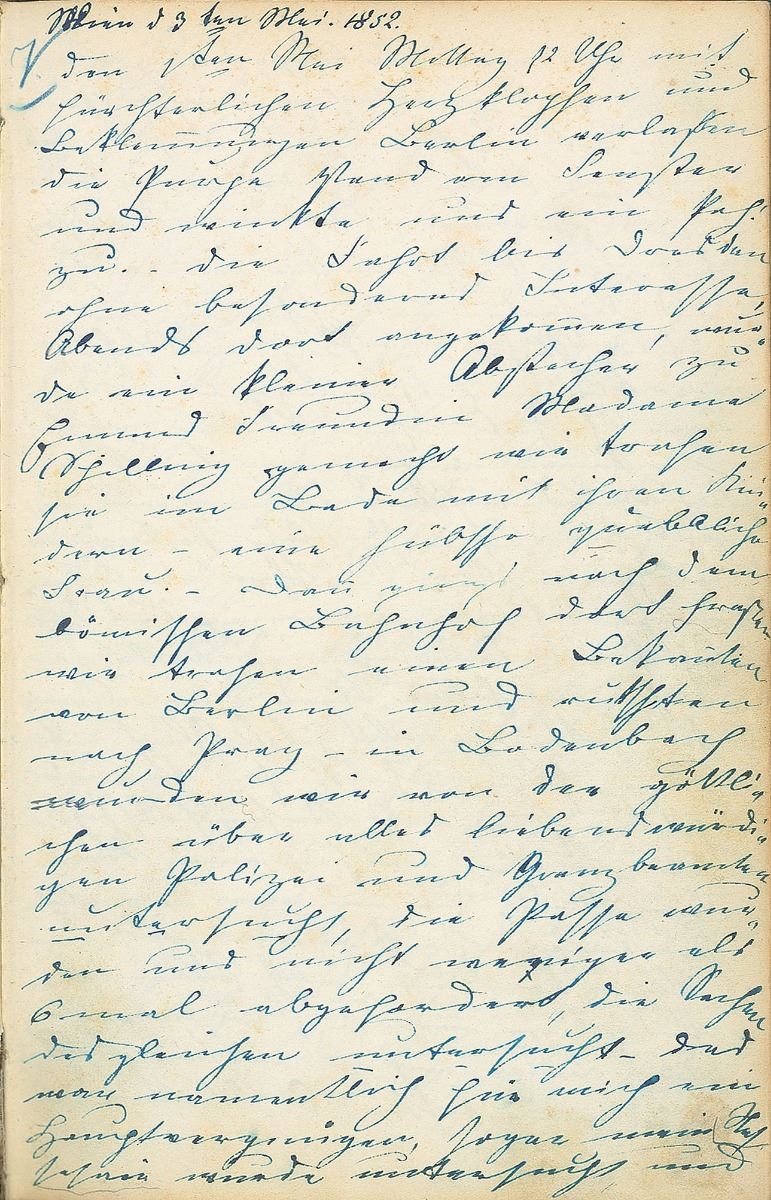 Wien d 3ten Mai. 1852.
den 1sten Mai Mittag 12 Uhr mit
fürchterlichen Herzklopfen und
Beklemmungen Berlin verlaßen
die Purpe stand am Fenster
und winkte uns ein
zu. - die Fahrt bis Dresden
ohne besonderes Interesse,
Abends dort angekommen, wur-
de ein kleiner Abstecher zu
Freundin Madame
Schilling gemacht wir trafen
sie im Bade mit ihren Kin-
dern - eine hübsche quabbliche
Frau. - Dan gings nach dem
bömischen Bahnhof dort
wir trafen einen Bekanten
von Berlin und rutschten
nach Prag - in Bodenbach
wurden wir von den göttli-
chen über alles liebenswürdi-
gen Polizei und Grenzbeamten
untersucht, die Pässe wur-
den uns nicht weniger als
6 mal abgefordert, die Sachen
desgleichen untersucht - das
war namentlich für mich ein
Hauptvergnügen, sogar mein
wurde untersucht und